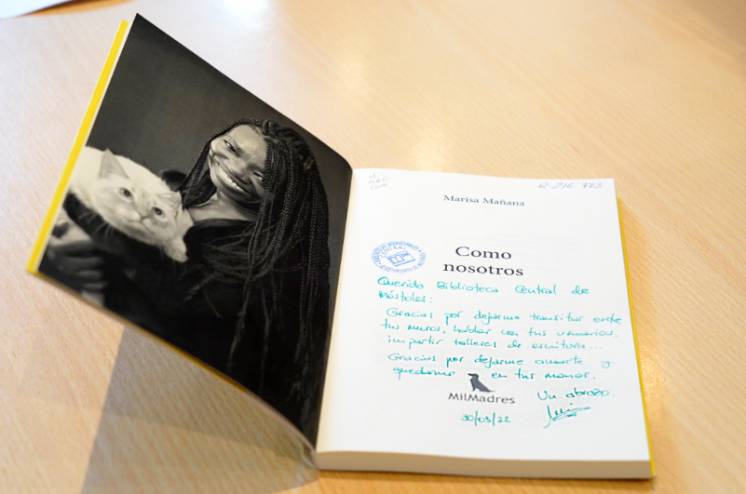 Marisa Mañana
Como
nosotros
Querida Biblioteca Central de
Móstoles:
Gracias por dejarme transitar entre
tus muros, hablar con tus usuarios,
impartir talleres de escritura...
Gracias por dejarme amarte y
quedarme en tus manos.
Un abrazo.
MilMadres
30/03/22